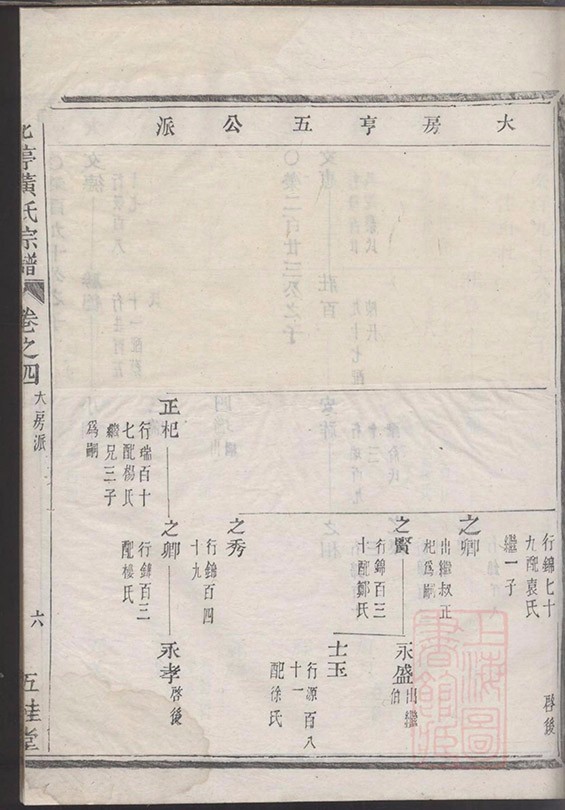 大房亨五公派
行錦七十
九配袁氏
繼一子
啓後
之卿
出繼叔正
杞爲嗣
之賢
行錦百三
十配鄒氏
永盛
出繼
伯
士玉
行源百八
十一
配徐氏
之秀
行錦百四
十九
正杞
行瑞百十
七配楊氏
繼兄三子
爲嗣
之卿
行錦百三
配樓氏
永孝
啓後
亭黃氏宗譜
卷之四
大房派
六
五桂堂
上海圖書館藏